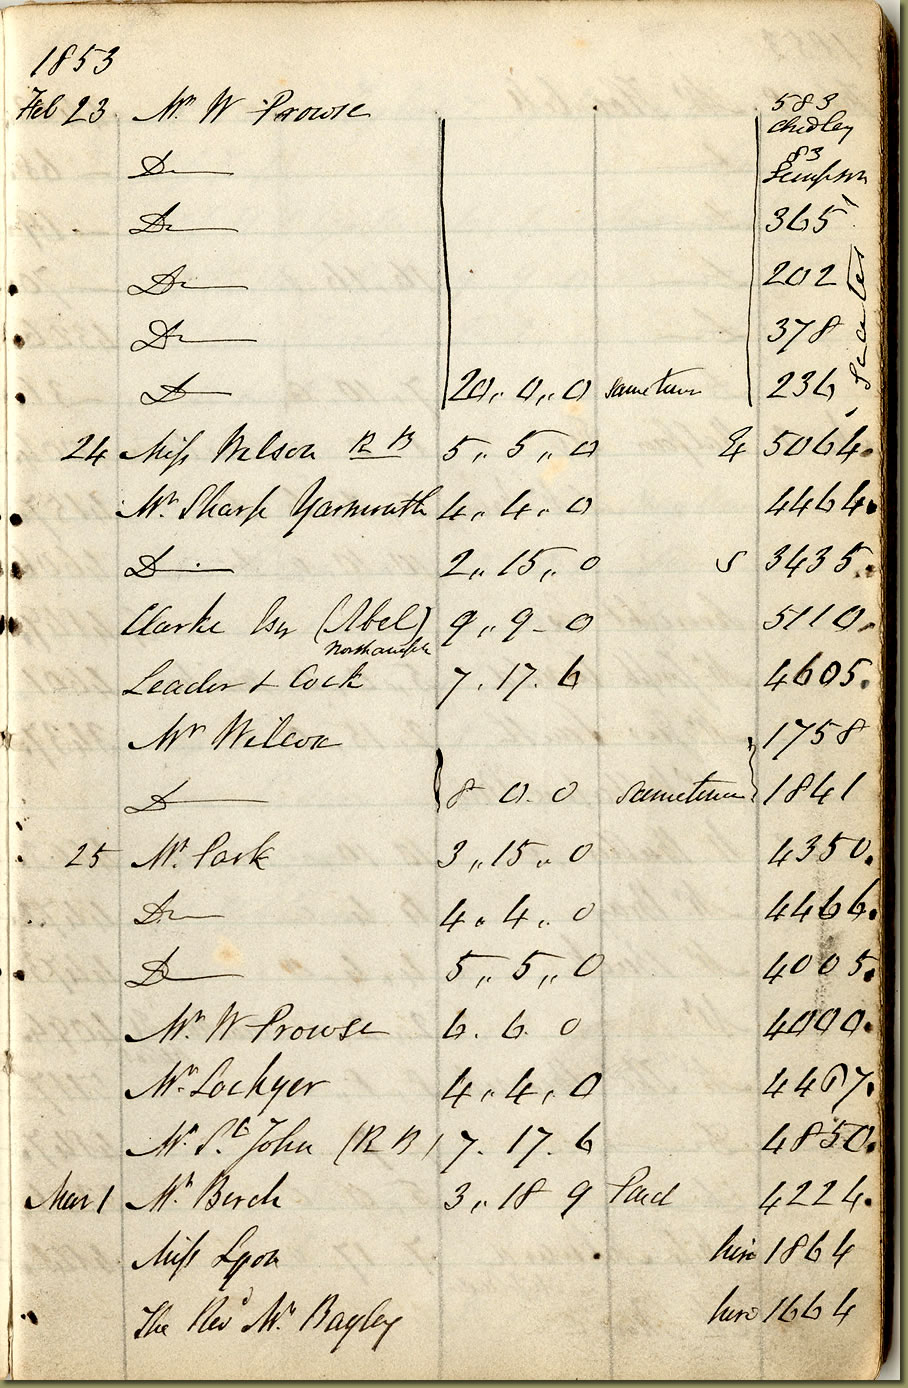 1853
Feb 23 Mr. W Prowse 583
Chidley
Do 83
Simpson
Do 365
Do 202
Do 378
Do 20,, 0,, 0 sometime 236
24 Miss Wilson R B 5,, 5,, 0 & 5064.
Mr. Sharp Yarmouth 4,, 4,, 0 4464.
Do 2,, 15,, 0 S 3435.
Clarke Esqr (Abel) 9,, 9 - 0 5110.
Northampn
Leader & Cock 7. 17. 6 4605.
Mr Wilcox 1758
Do 8 0. 0 sometime 1841
25 Mr. Park 3,, 15,, 0 4350.
Do 4,, 4,, 0 4466.
Do 5,, 5,, 0 4005.
Mr. W Prowse 6. 6. 0 4000.
Mr. Lockyer 4,, 4,, 0 4467.
Mr. St. John (R B) 7. 17. 6 4850.
Mar 1 Mr. Birch 3,, 18 9 Paid 4224.
Miss Lyon hire 1864
The Revd Mr. Bagley hire 1664